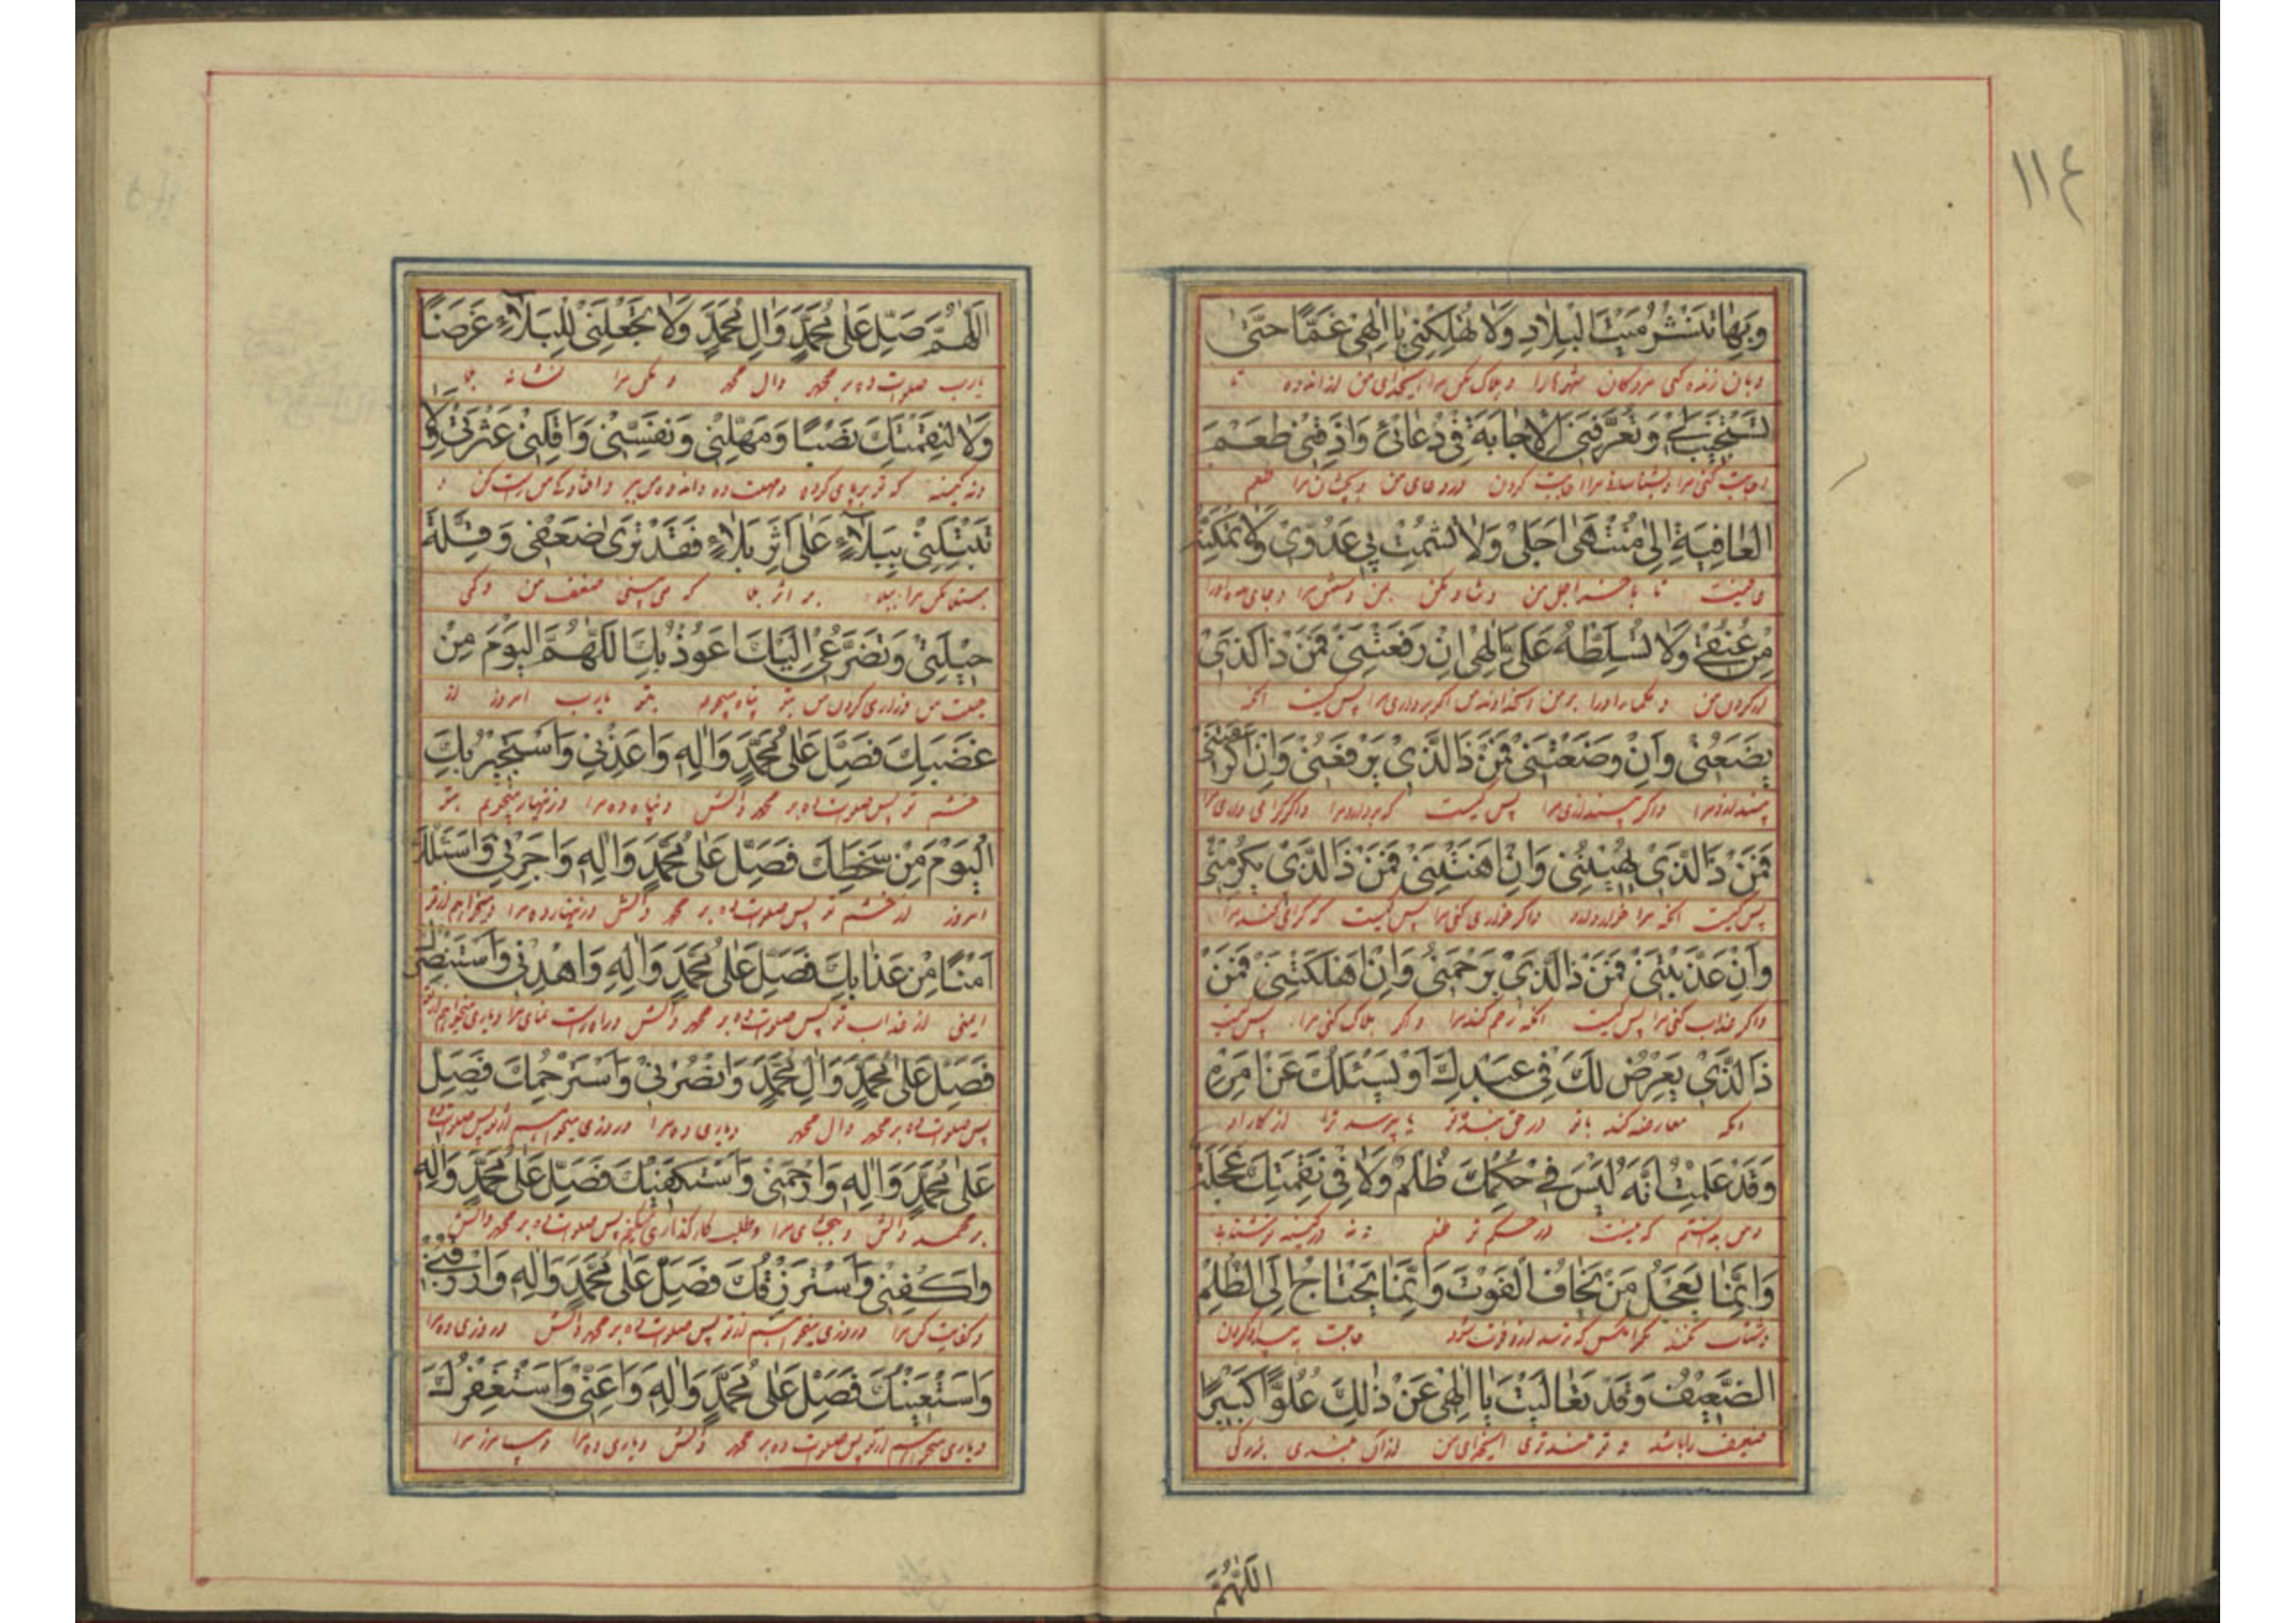 ١١٤
وَبِهَا تَنْشُرُ مَيْتَ الْبِلَادِ وَلَا تُهْلِكْنِي يَا إِلٰهِي غَمًّا حَتَّى
و بآن زنده کنی مردکان شهرها را و هلاک مکن مرا ایخدای من از اندوه تا
تَسْتَجِيبَ لِي وَتُعَرِّفَنِي الْإِجَابَةَ فِي دُعَائِي وَأَذِقْنِي طَعْمَ
اجابت کنی مرا و بشناسانی مرا اجابت کردن در دعای من و بچشان مرا طعم
الْعَافِيَةِ إِلَى مُنْتَهَى أَجَلِي وَلَا تُشْمِتْ بِي عَدُوِّي وَلَا تُمَكِّنْهُ
عافیت تا باخر اجل من و شاد مکن بمن دشمن مرا و جای مده او را
مِنْ عُنُقِي وَلَا تُسَلِّطْهُ عَلَيَّ إِلٰهِي إِنْ رَفَعْتَنِي فَمَنْ ذَا الَّذِي
از کردن من و مکمار او را بر من ایخداوند من اکر برداری مرا پس کیست آنکه
يَضَعُنِي وَإِنْ وَضَعْتَنِي فَمَنْ ذَا الَّذِي يَرْفَعُنِي وَإِنْ أَكْرَمْتَنِي
پس کیست که بردارد مرا و اکر کرامی داری مرا
فَمَنْ ذَا الَّذِي يُهِينُنِي وَإِنْ أَهَنْتَنِي فَمَنْ ذَا الَّذِي يُكْرِمُنِي
پس کیست آنکه مرا خوار دارد و اکر خواری کنی مرا پس کیست که کرامی کند مرا
وَإِنْ عَذَّبْتَنِي فَمَنْ ذَا الَّذِي يَرْحَمُنِي وَإِنْ أَهْلَكْتَنِي فَمَنْ
و اکر عذاب کنی مرا پس کیست آنکه رحم کند مرا و اکر هلاک کنی مرا پس کیست
ذَا الَّذِي يَعْرِضُ لَكَ فِي عَبْدِكَ أَوْ يَسْئَلُكَ عَنْ أَمْرِهِ
آنکه معارضه کند با تو در حق بنده تو یا پرسد ترا از کار او
وَقَدْ عَلِمْتُ أَنَّهُ لَيْسَ فِي حُكْمِكَ ظُلْمٌ وَلَا فِي نَقِمَتِكَ عَجَلَةٌ
و من بدانستم که نیست در حکم تو ظلم و نه در کینه تو شتاب
وَإِنَّمَا يَعْجَلُ مَنْ يَخَافُ الْفَوْتَ وَإِنَّمَا يَحْتَاجُ إِلَى الظُّلْمِ
و شتاب نکند مکر آنکس که ترسد از فوت شود حاجت به بیداد کردن
الضَّعِيفُ وَقَدْ تَعَالَيْتَ يَا إِلٰهِي عَنْ ذٰلِكَ عُلُوًّا كَبِيرًا
ضعیف را باشد و تو بلندتری ایخدای من از آن بلندی بزرکی
اللّٰهُمَّ
اللّٰهُمَّ صَلِّ عَلَى مُحَمَّدٍ وَآلِ مُحَمَّدٍ وَلَا تَجْعَلْنِي لِلْبَلَاءِ غَرَضًا
یارب صلوات ده بر محمد و آل محمد و مکن مرا نشانه بلا
وَلَا لِنَقِمَتِكَ نَصَبًا وَمَهِّلْنِي وَنَفِّسْنِي وَأَقِلْنِي عَثْرَتِي وَلَا
و نه کینه که تو بر پای کرده و مهلت ده و اندوه من ببر و افتادکی من راست کن و
تَبْتَلِيَنِّي بِبَلَاءٍ عَلَى أَثَرِ بَلَاءٍ فَقَدْ تَرَى ضَعْفِي وَقِلَّةَ
مبتلا مکن مرا ببلا بر اثر بلا که می بینی ضعف من و کمی
حِيلَتِي وَتَضَرُّعِي إِلَيْكَ أَعُوذُ بِكَ اللّٰهُمَّ الْيَوْمَ مِنْ
حیلت من و زاری کردن من بتو پناه میجویم بتو یارب امروز از
غَضَبِكَ فَصَلِّ عَلَى مُحَمَّدٍ وَآلِهِ وَأَعِذْنِي وَأَسْتَجِيرُ بِكَ
خشم تو پس صلوات ده بر محمد و آلش و پناه ده مرا و زنهار میجویم بتو
الْيَوْمَ مِنْ سَخَطِكَ فَصَلِّ عَلَى مُحَمَّدٍ وَآلِهِ وَأَجِرْنِي وَأَسْئَلُكَ
امروز از خشم تو پس صلوات ده بر محمد و آلش و زنهار ده مرا و میخواهم از تو
أَمْنًا مِنْ عَذَابِكَ فَصَلِّ عَلَى مُحَمَّدٍ وَآلِهِ وَاهْدِنِي وَأَسْتَنْصِرُكَ
ایمنی از عذاب تو پس صلوات ده بر محمد و آلش و راه راست نمای مرا و یاری میخواهم از تو
فَصَلِّ عَلَى مُحَمَّدٍ وَآلِ مُحَمَّدٍ وَانْصُرْنِي وَأَسْتَرْحِمُكَ فَصَلِّ
پس صلوات ده بر محمد و آل محمد و یاری ده مرا و روزی میخواهم از تو پس صلوات ده
عَلَى مُحَمَّدٍ وَآلِهِ وَارْحَمْنِي وَأَسْتَكْفِيكَ فَصَلِّ عَلَى مُحَمَّدٍ وَآلِهِ
بر محمد و آلش و ببخشای مرا و طلب کارکذاری میکنم پس صلوات ده بر محمد و آلش
وَاكْفِنِي وَأَسْتَرْزِقُكَ فَصَلِّ عَلَى مُحَمَّدٍ وَآلِهِ وَارْزُقْنِي
و کفایت کن مرا و روزی میخواهم از تو پس صلوات ده بر محمد و آلش و روزی ده مرا
وَأَسْتَعِينُكَ فَصَلِّ عَلَى مُحَمَّدٍ وَآلِهِ وَأَعِنِّي وَأَسْتَغْفِرُكَ
و یاری میخواهم از تو پس صلوات ده بر محمد و آلش و یاری ده مرا و بیامرز مرا